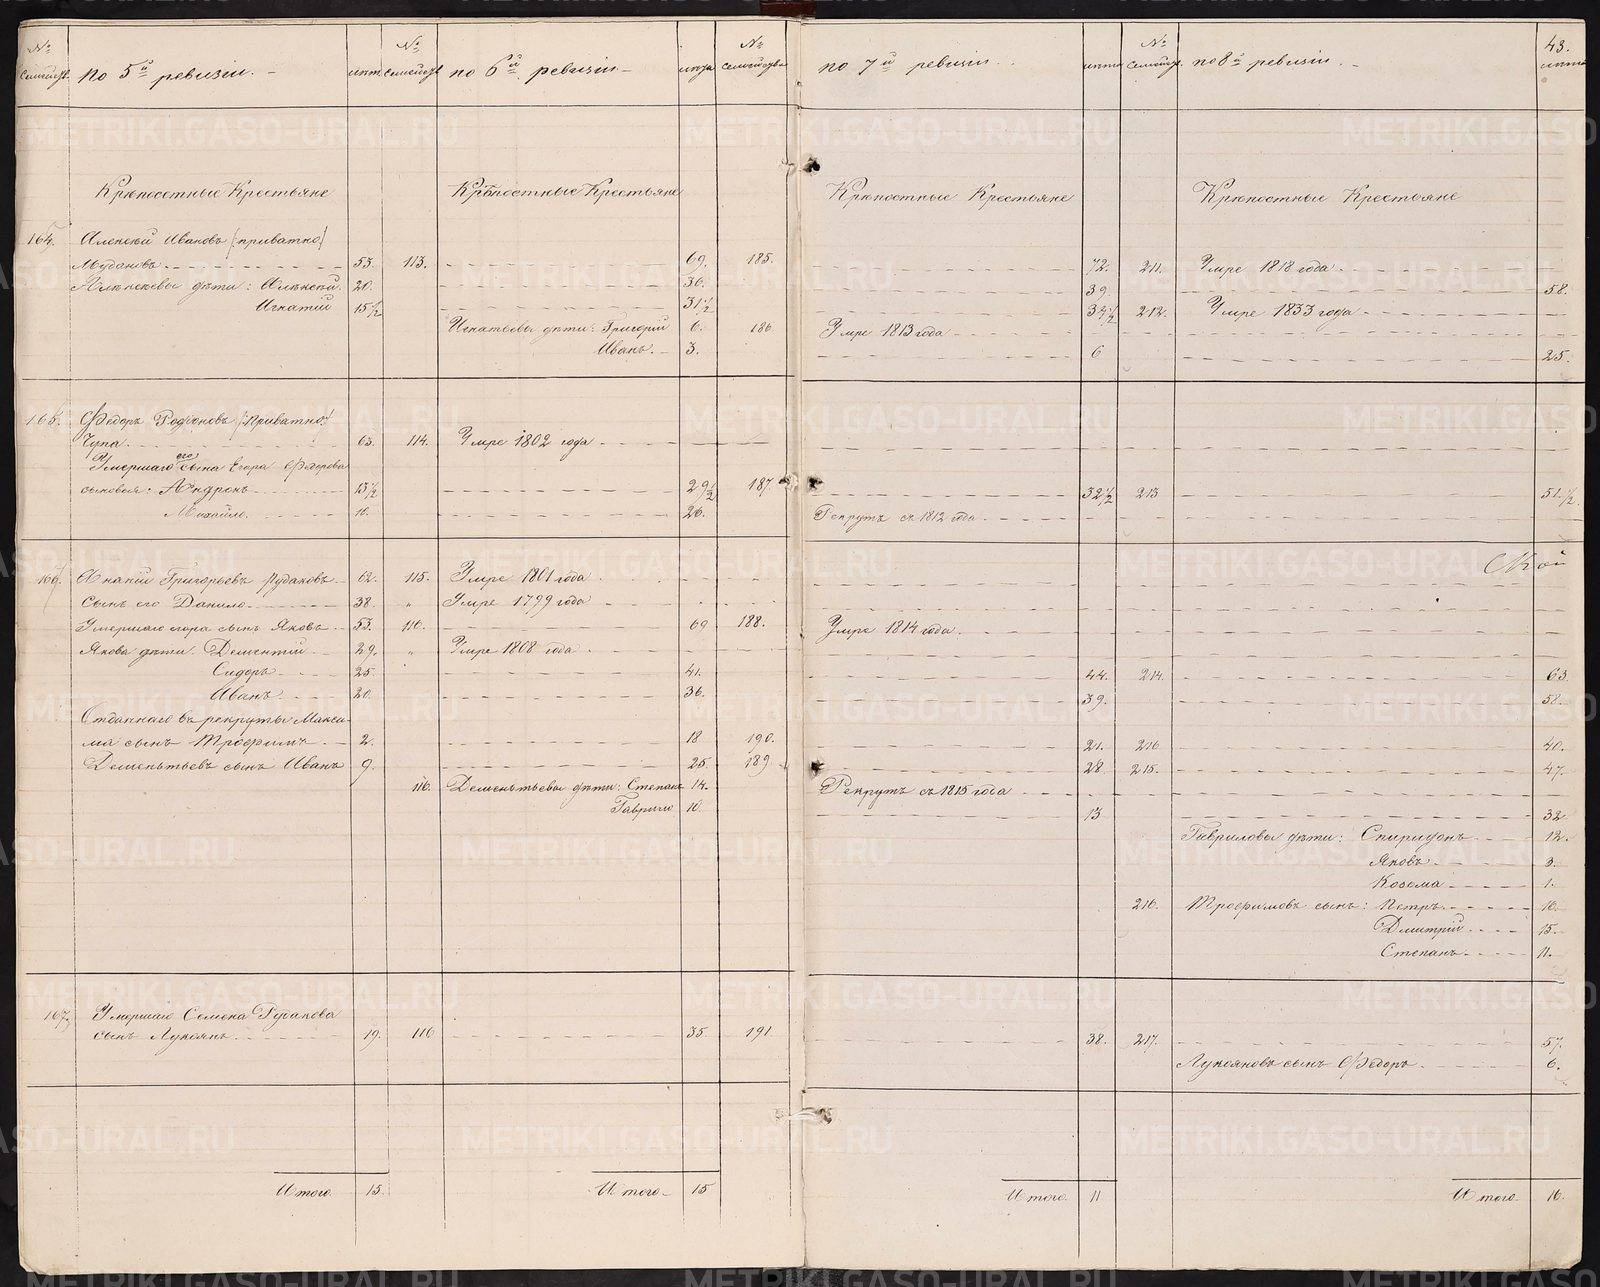 43.
№ семейст. по 5й ревизіи. лѣта № семейст. по 6й ревизіи лѣта № семейства по 7й ревизіи лѣта № семейст. по 8й ревизіи лѣта
Крѣпостные Крестьяне Крѣпостные Крестьяне Крѣпостные Крестьяне Крѣпостные Крестьяне
164. Алексѣй Ивановъ /приватно/
53. 113. 69. 185. 72. 211. Умре 1818 года
дѣти: Алексѣй 20. 36. 39 58.
Игнатій 15 1/2 31 1/2 34 1/2 212. Умре 1833 года
Игнатьевы дѣти: Григорій 6. 186 Умре 1813 года
Иванъ. 3. 6 25.
165. Федоръ Родіоновъ /приватно/
Чупа. 63. 114. Умре 1802 года
Умершаго его сына Егора Федорова
сыновья: Андронъ 13 1/2 29 1/2 187. 32 1/2 213 51 1/2
Михайло. 10. 26. Рекрутъ съ 1812 года
166. Ананій Григорьевъ Рудаковъ 62. 115. Умре 1801 года
Сынъ его Данило 38. „ Умре 1799 года
Умершаго сынъ Яковъ 53. 116. 69 188. Умре 1814 года.
Якова дѣти. Дементій 29. „ Умре 1808 года
Сидоръ 25 41. 44. 214. 63
Иванъ 20. 36. 39. 58.
Отданнаго въ рекруты Макси-
ма сынъ Трофимъ 2. 18 190. 21. 216 40.
Дементьевъ сынъ Иванъ 9. 25. 189 28. 215. 47.
116. Дементьевы дѣти: Степанъ 14. Рекрутъ съ 1815 года
Гаврило 10. 13 32
Гавриловы дѣти: Спиридонъ 12.
Яковъ 3.
Козьма 1.
216. Трофимовъ сынъ: Петръ 16.
Дмитрій 15.
Степанъ 11.
167. Умершаго Семена Рудакова
сынъ Лукоянъ 19. 116 35. 191 38. 217. 57.
Лукояновъ сынъ Федоръ 6.
Итого. 15. Итого 15 Итого. 11 Итого. 16.
METRIKI.GASO-URAL.RU